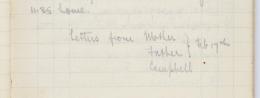 11.35 home.
Letters from Mother
Father } Feb 19th
Campbell